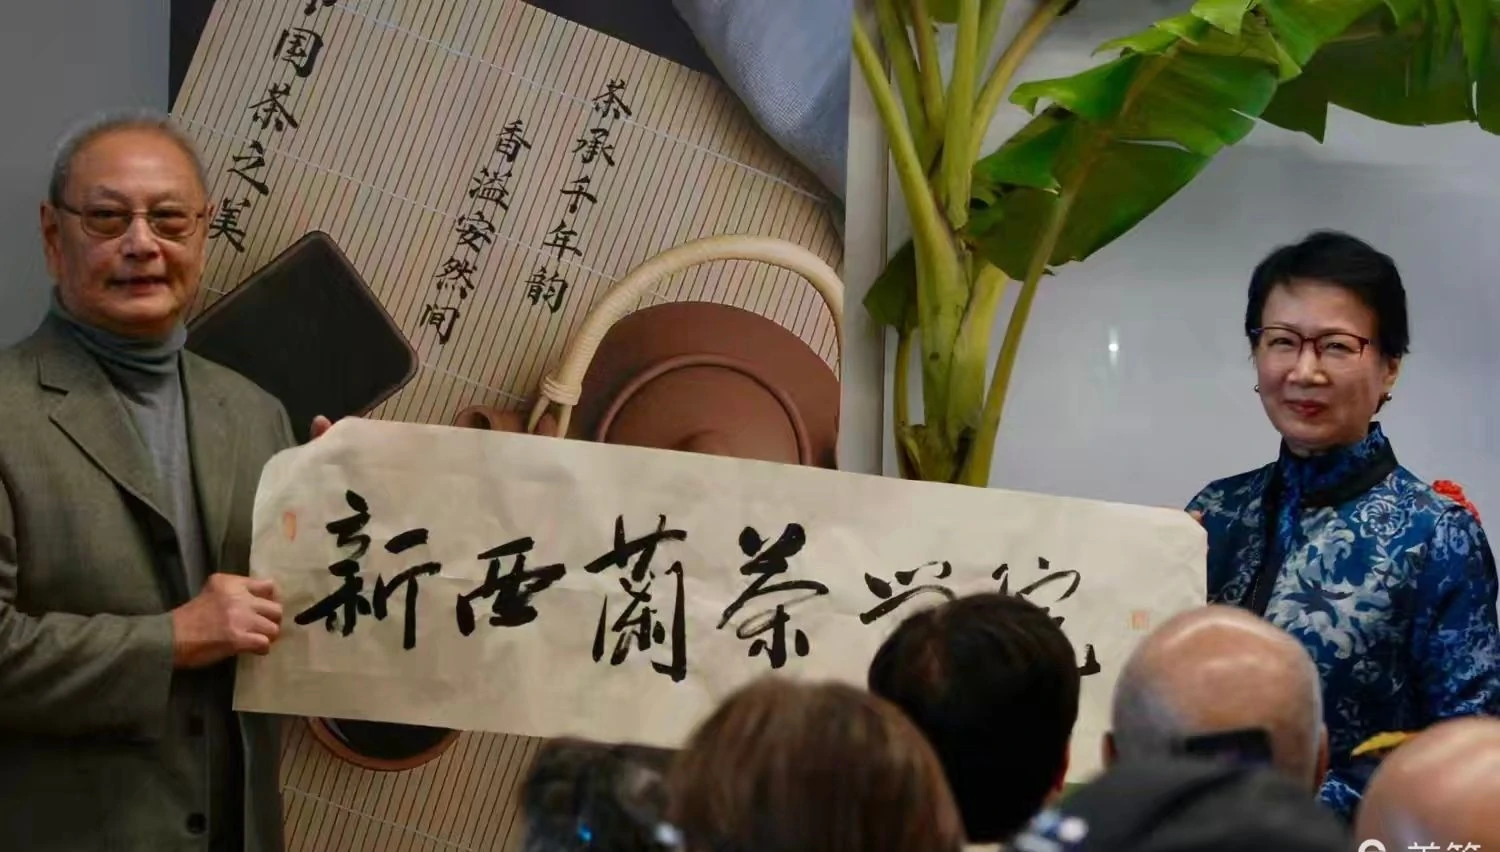 茶承千年韵
香溢安然间
国茶之美
新西蘭茶学院